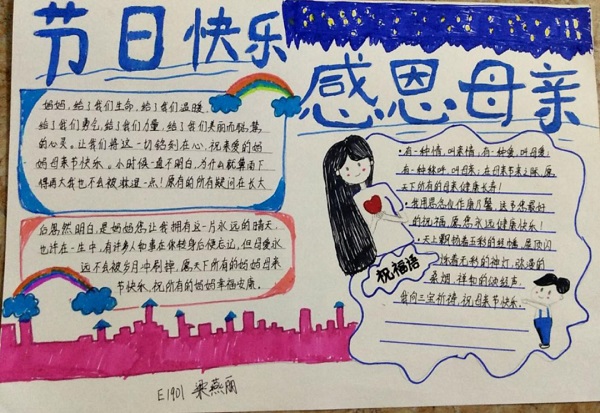 节日快乐
感恩母亲
妈妈,给了我们生命,给了我们温暖,
给了我们勇气,给了我们力量,给了我们美丽而聪慧
的心灵。让我们将这一切铭刻在心,祝亲爱的妈
妈母亲节快乐。小时候一直不明白,为什么就算雨下
得再大我也不会被淋湿一点!原有的所有疑问在长大
后忽然明白,是妈妈您让我拥有这一片永远的晴天,
也许在一生中,有许多人和事在你转身后便忘记,但母爱永
远不会被岁月冲刷掉,愿天下所有的妈妈母亲
节快乐,祝所有的妈妈幸福安康。
有一种情,叫亲情,有一种爱,叫母爱,
有一种称呼,叫母亲,在母亲节来之际,愿
天下所有的母亲健康长寿!
我用思念
的祝福,愿您永远健康快乐!
天上飘
祥和的
我向三宝祈祷,祝母亲节快乐。
祝福语
E1901 梁燕丽